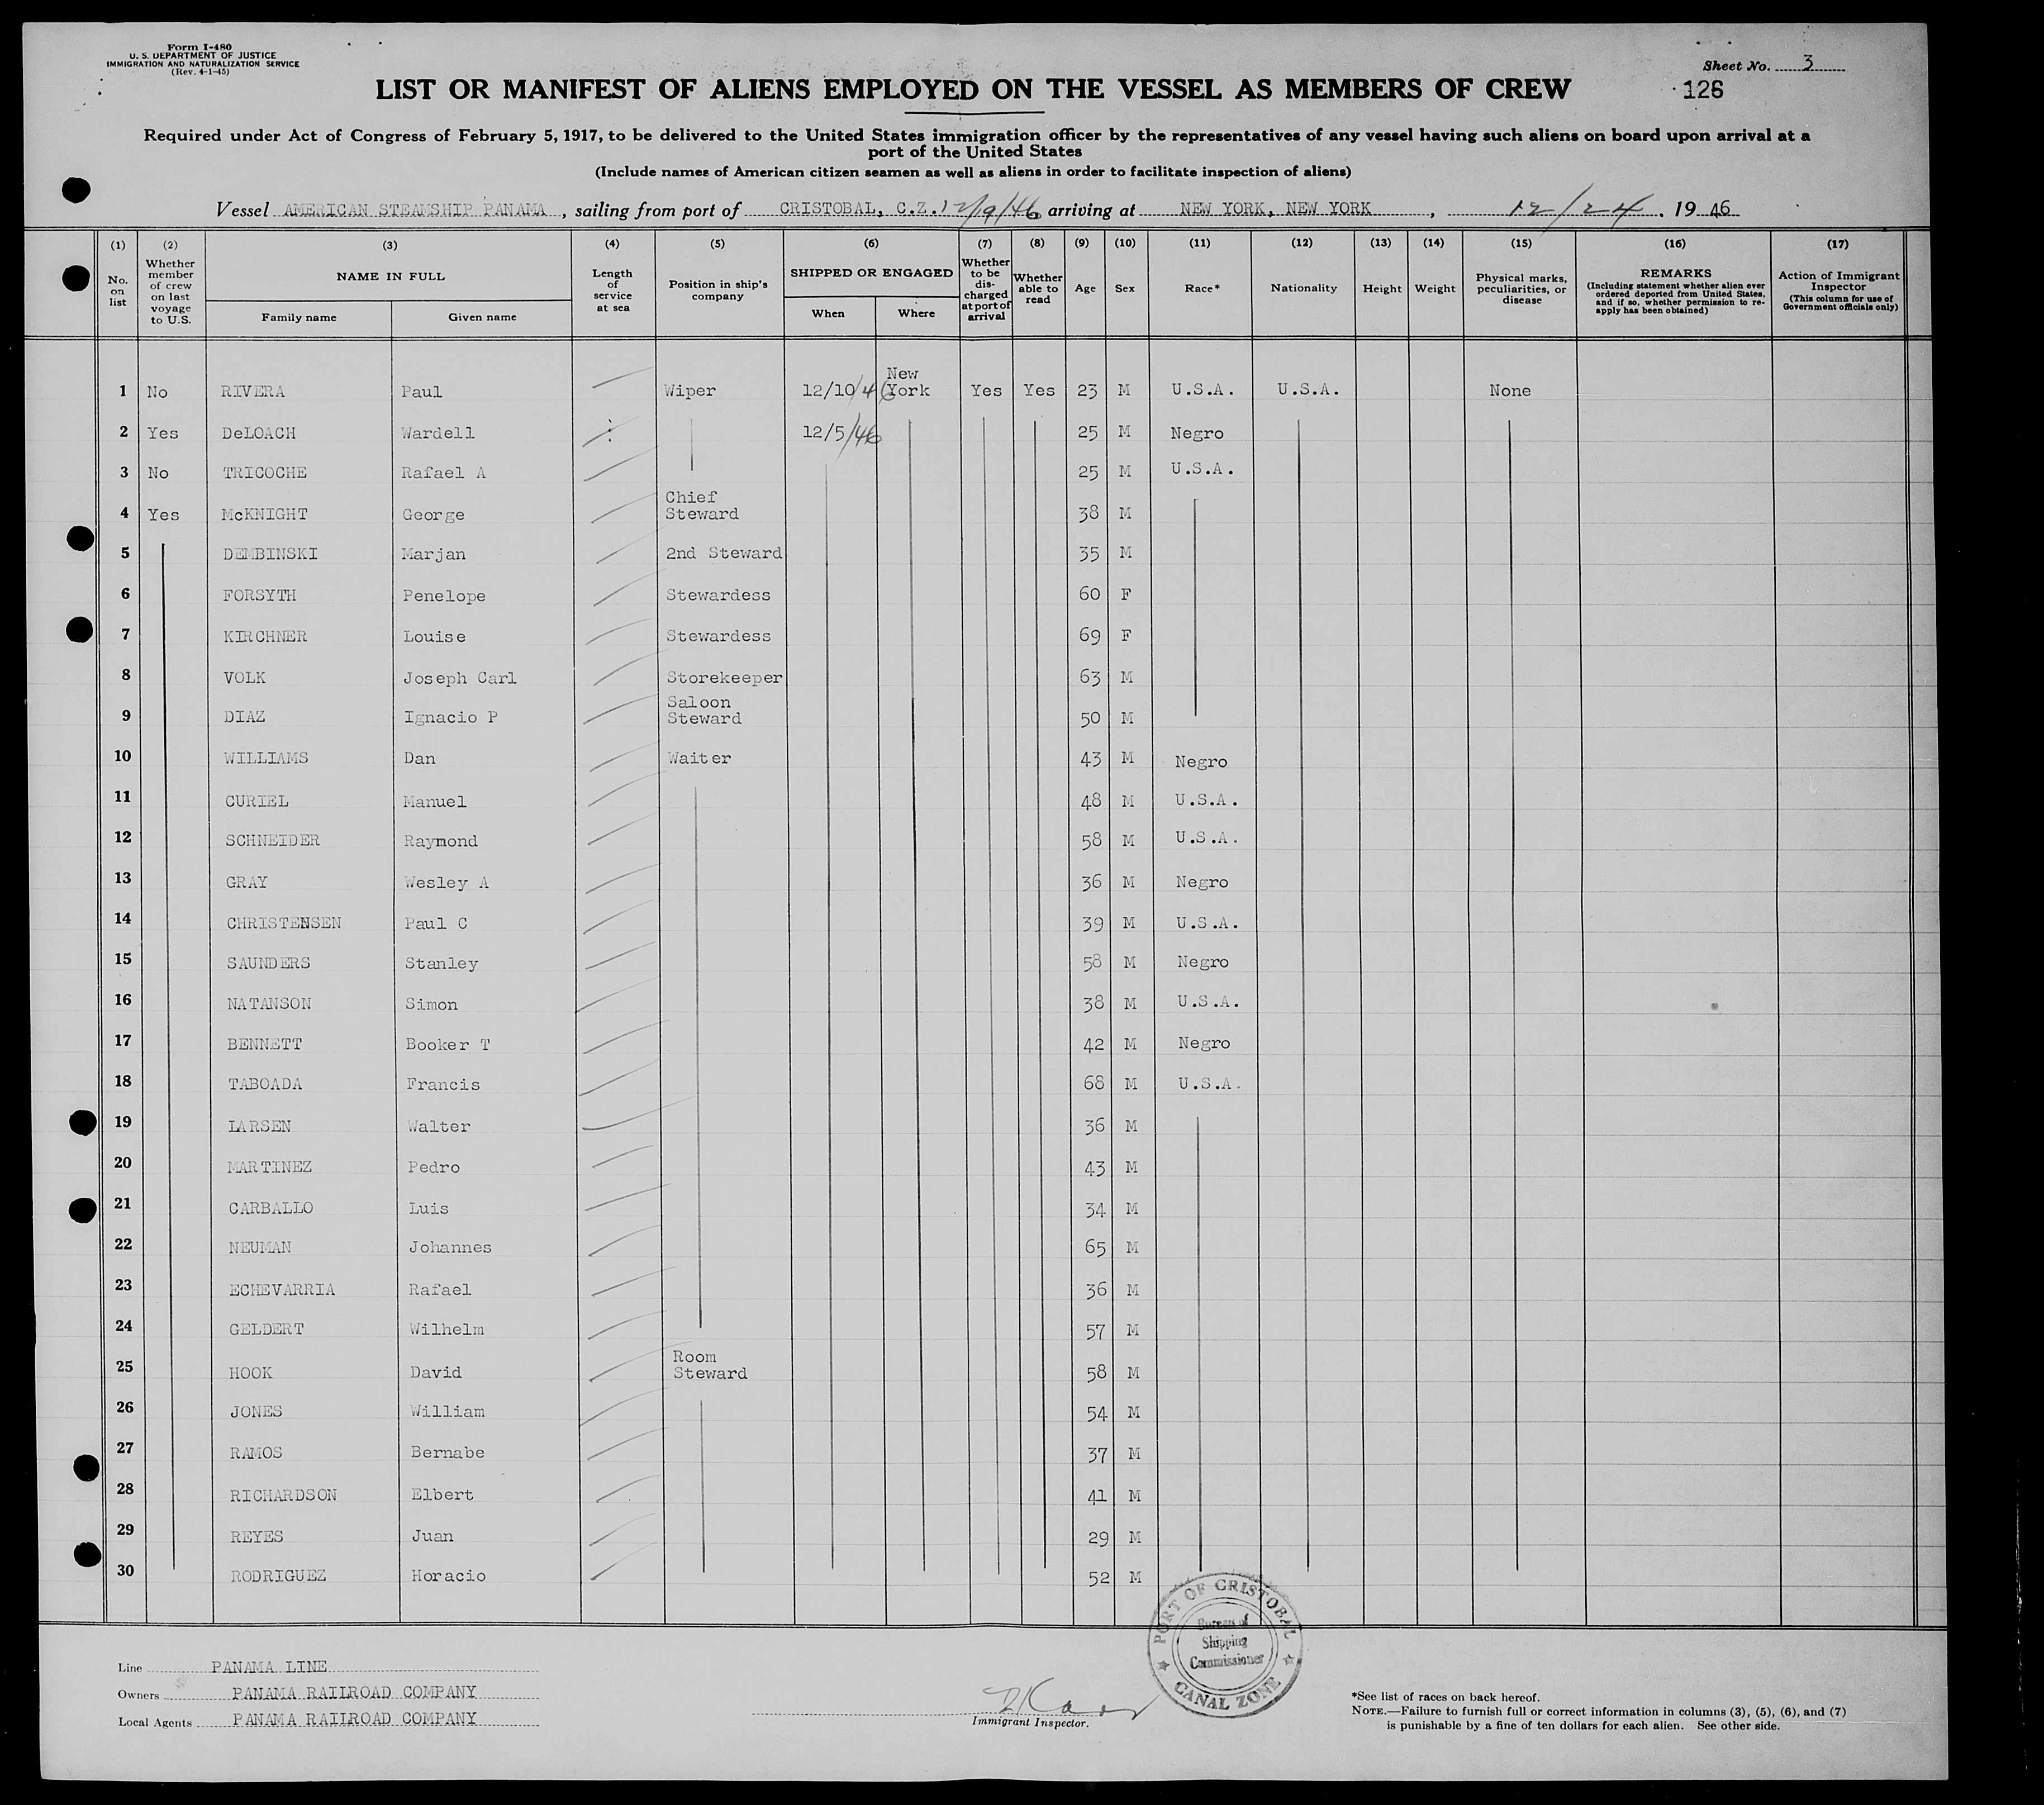 Form I-480
U. S. DEPARTMENT OF JUSTICE
IMMIGRATION AND NATURALIZATION SERVICE
(Rev. 4-1-45)
Sheet No. 3
LIST OR MANIFEST OF ALIENS EMPLOYED ON THE VESSEL AS MEMBERS OF CREW
126
Required under Act of Congress of February 5, 1917, to be delivered to the United States immigration officer by the representatives of any vessel having such aliens on board upon arrival at a
port of the United States
(Include names of American citizen seamen as well as aliens in order to facilitate inspection of aliens)
Vessel AMERICAN STEAMSHIP PANAMA, sailing from port of CRISTOBAL, C.Z. 12/19/46 arriving at NEW YORK, NEW YORK, 12/24, 19 46
(1) (2) (3) (4) (5) (6) (7) (8) (9) (10) (11) (12) (13) (14) (15) (16) (17)
No. on list
Whether member of crew on last voyage to U.S.
NAME IN FULL
Family name
Given name
Length of service at sea
Position in ship's company
SHIPPED OR ENGAGED
When
Where
Whether to be discharged at port of arrival
Whether able to read
Age
Sex
Race*
Nationality
Height
Weight
Physical marks, peculiarities, or disease
REMARKS
(Including statement whether alien ever ordered deported from United States, and if so, whether permission to re-apply has been obtained)
Action of Immigrant Inspector
(This column for use of Government officials only)
1 No RIVERA Paul Wiper 12/10/46 New York Yes Yes 23 M U.S.A. U.S.A. None
2 Yes DeLOACH Wardell 12/5/46 25 M Negro
3 No TRICOCHE Rafael A 25 M U.S.A.
4 Yes McKNIGHT George Chief Steward 38 M
5 DEMBINSKI Marjan 2nd Steward 35 M
6 FORSYTH Penelope Stewardess 60 F
7 KIRCHNER Louise Stewardess 69 F
8 VOLK Joseph Carl Storekeeper 63 M
9 DIAZ Ignacio P Saloon Steward 50 M
10 WILLIAMS Dan Waiter 43 M Negro
11 CURIEL Manuel 48 M U.S.A.
12 SCHNEIDER Raymond 58 M U.S.A.
13 GRAY Wesley A 36 M Negro
14 CHRISTENSEN Paul C 39 M U.S.A.
15 SAUNDERS Stanley 58 M Negro
16 NATANSON Simon 38 M U.S.A.
17 BENNETT Booker T 42 M Negro
18 TABOADA Francis 68 M U.S.A.
19 LARSEN Walter 36 M
20 MARTINEZ Pedro 43 M
21 CARBALLO Luis 34 M
22 NEUMAN Johannes 65 M
23 ECHEVARRIA Rafael 36 M
24 GELDERT Wilhelm 57 M
25 HOOK David Room Steward 58 M
26 JONES William 54 M
27 RAMOS Bernabe 37 M
28 RICHARDSON Elbert 41 M
29 REYES Juan 29 M
30 RODRIGUEZ Horacio 52 M
PORT OF CRISTOBAL
Bureau of
Shipping
Commissioner
CANAL ZONE
Line PANAMA LINE
Owners PANAMA RAILROAD COMPANY
Local Agents PANAMA RAILROAD COMPANY
Immigrant Inspector.
*See list of races on back hereof.
NOTE.—Failure to furnish full or correct information in columns (3), (5), (6), and (7)
is punishable by a fine of ten dollars for each alien. See other side.